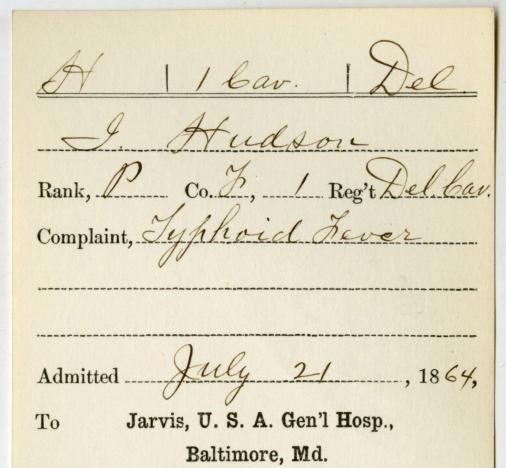 H | 1 Cav. | Del.
I. Hudson
Rank, P Co. F, 1 Reg't Del Cav.
Complaint, Typhoid Fever
Admitted July 21, 1864,
To Jarvis, U. S. A. Gen'l Hosp.,
Baltimore, Md.